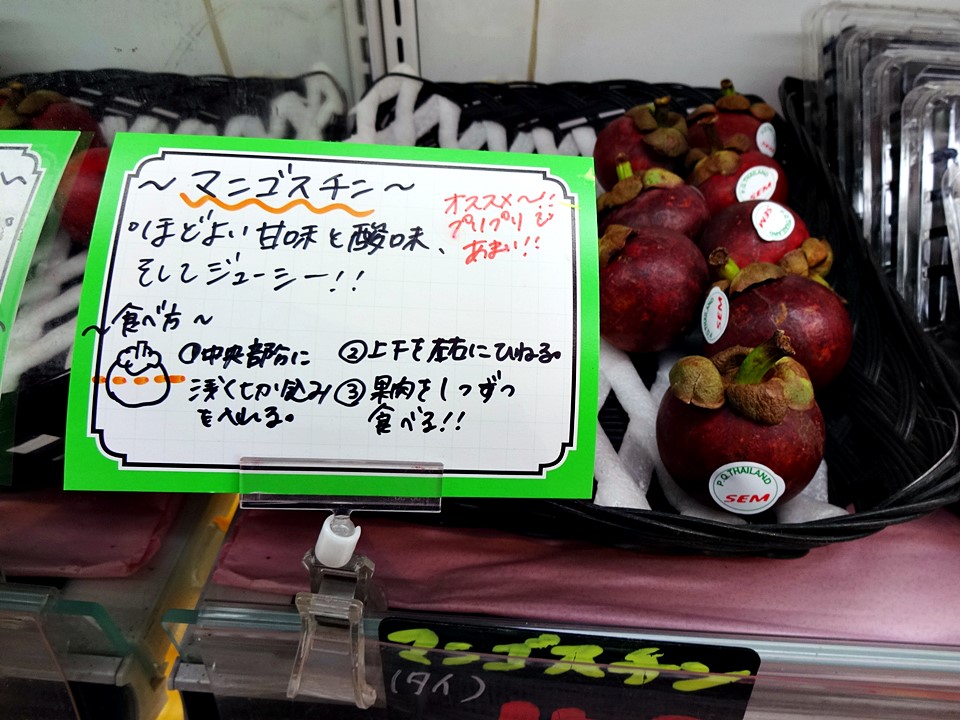 ~ マンゴスチン ~
オススメ〜!!
プリップリで
あまい!!
ほどよい甘味と酸味、
そしてジューシー!!
~ 食べ方 ~
①中央部分に
浅く切り込み
を入れる。
②上下を左右にひねる。
③果肉を1つずつ
食べる!!
い
P.Q.THAILAND
SEM
SEM
SEM
マンゴスチン
(タイ)